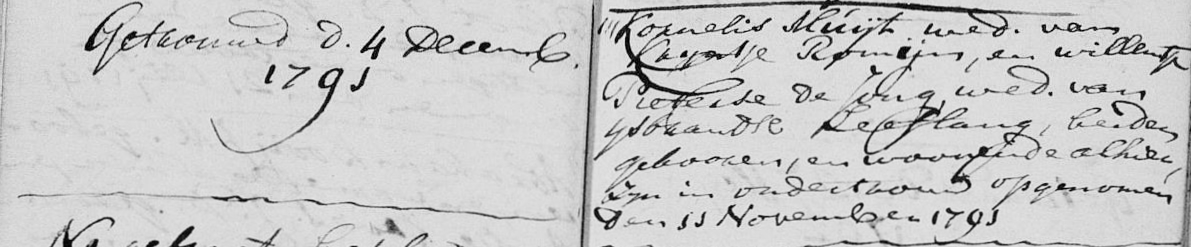 Getrouwd d. 4 Decemb.
1791
Kornelis Kluijt wed. van
Romijn, en willemtje
Pieterse de Jong, wed. van
ysbrandse Leeflang, beiden
gebooren, en woonende alhier,
zyn in ondertrouw opgenomen
den 11 November 1791